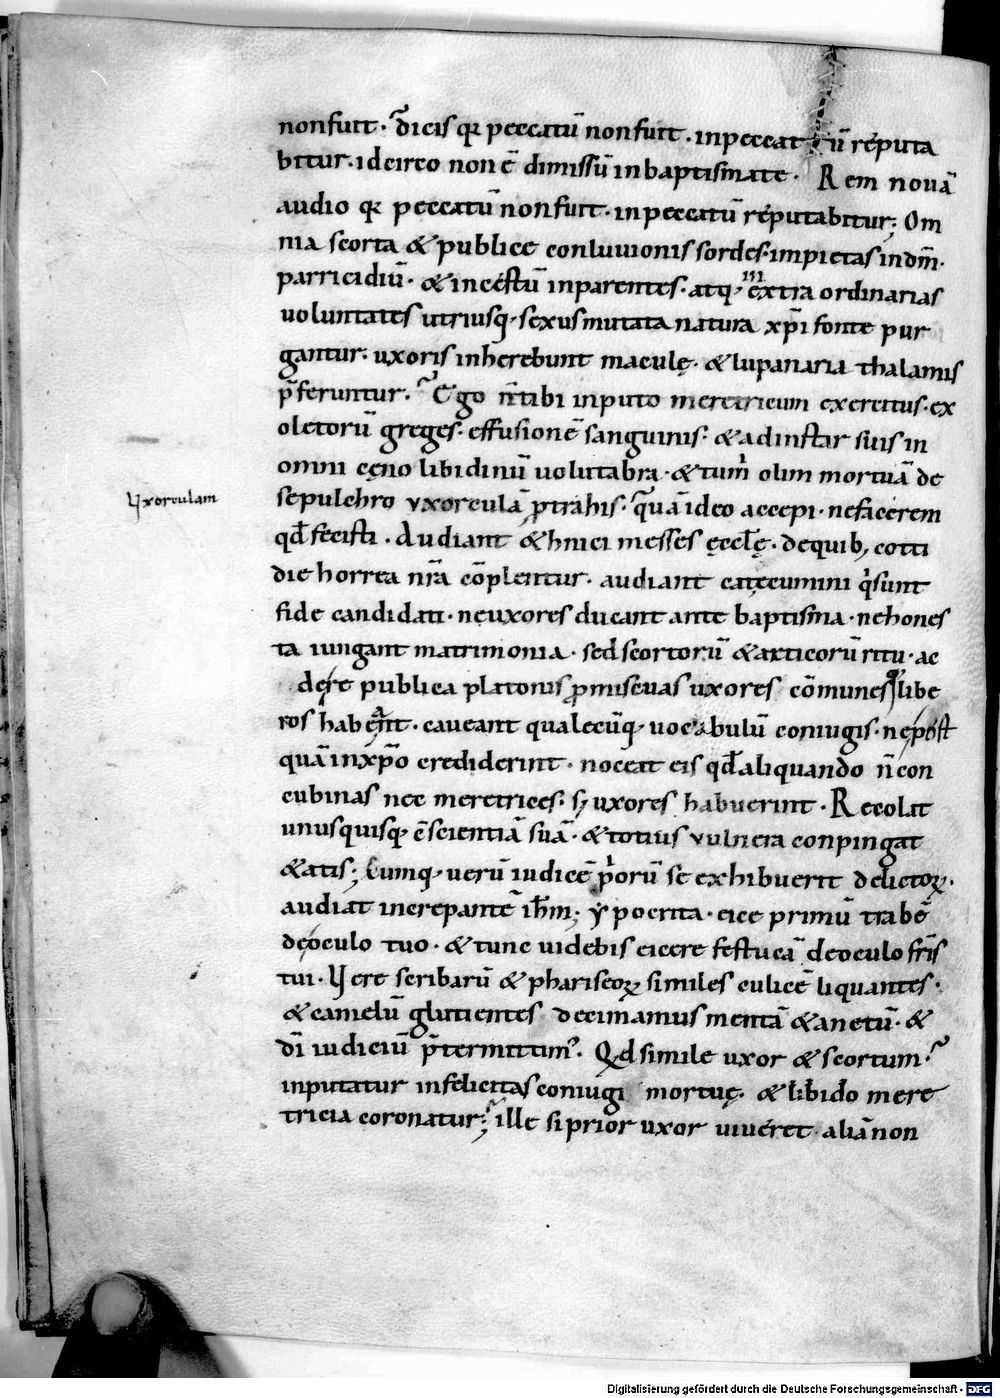 nonfuit. dicis qr peccatū non fuit. inpeccat ū reputa
bitur. idcirco non ē dimissū inbaptismate. Rem nouā
audio qr peccatū non fuit. inpeccatū reputabitur; Om
nia scorta & publice conluuionis sordes. impietas indm̄.
parricidiū. & incestū inparentes. atq; in extra ordinarias
uoluntates utriusq; sexus mutata natura xp̄i fonte pur
gantur. uxoris inherebunt maculę. & lupanaria thalamis
p̄feruntur. Ego n̄ tibi inputo meretricum exercitus. ex
oletorū greges. effusionē sanguinis. & adinstar suis in
omni cęno libidinū uolutabra. & tu m̄ olim mortuā de
sepulchro uxorculā ꝑtrahis. quā ideo accepi. ne facerem
Vxorculam
qd̄ fecisti. Audiant ethnici messes ęccl̄ę. de quib; coti
die horrea nr̄a cōplentur. audiant catecumini q̄ sunt
fide candidati. ne uxores ducant ante baptisma. ne hones
ta iungant matrimonia. sed scortorū & atticorū ritu. ac
dere publica platonis ꝓmiscuas uxores cōmunes q; libe
ros habent. caueant qualecūq; uocabulū coniugis. ne post
quā inxp̄o crediderint. noceat eis qd̄ aliquando n̄ con
cubinas nec meretrices. s; uxores habuerint. Recolat
unusquisq; c̄scientiā suā. & totius vulnera conpingat
&atis; Cumq; uerū iudicē p̄orū se exhibuerit delictoꝝ.
audiat increpantē ih̄m; ypocrita. eice primū trabē
deoculo tuo. & tunc uidebis eicere festucā deoculo fr̄is
tui. Vere scribarū & phariseoꝝ similes culicē liquantes.
& camelū glutientes decimamus mentā & anetū. &
dī iudiciū p̄termittim;. Qd simile uxor & scortum.
inputatur infelicitas coniugi mortuę. & libido mere
tricia coronatur; ille si prior uxor uiueret aliā non
Digitalisierung gefördert durch die Deutsche Forschungsgemeinschaft - DFG